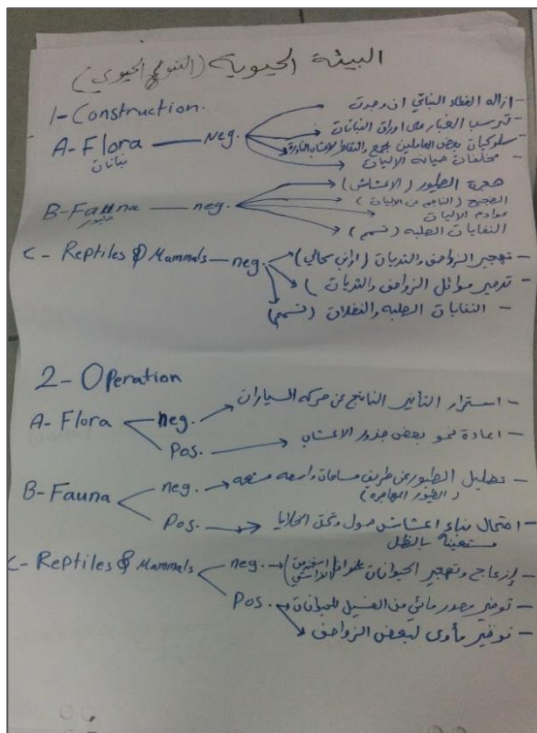 البيئة الحيوية (التنوع الحيوي)
1- Construction.
A- Flora — Neg. - ازاله الغطاء النباتي ان وجدت
نباتات - ترسب الغبار على اوراق النباتات
- سلوكيات بعض العاملين بجمع والتقاط الاعشاب النادرة
- مخلفات صيانة الاليات
B- Fauna — neg. هجرة الطيور (الاعشاش)
طيور الضجيج (الناجم عن الاليات)
الاليات
النفايات الصلبه (تسمم)
C- Reptiles & Mammals — neg. - تهجير الزواحف والثديات (ارانب سحالي)
- تدمير موائل الزواحف والثديات
- النفايات الصلبه والفضلات (تسمم)
2- Operation
A- Flora neg. - استمرار التأثير الناتج عن حركه السيارات
Pos. - اعادة نمو بعض جذور الاعشاب
B- Fauna neg. - تضليل الطيور عن طريق مساحات واسعه
(الطيور المهاجره)
Pos. - احتمال بناء اعشاش حول وتحت الخلايا
مستعينه بالظل
C- Reptiles & Mammals neg. - إزعاج وتهجير الحيوانات
Pos. - توفير مصدر مائي من الغسيل للحيوانات
- توفير مأوى لبعض الزواحف